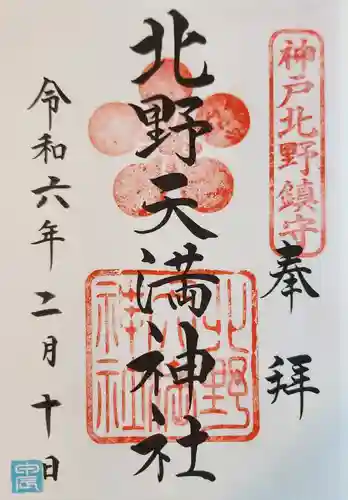 神戸北野鎮守
奉拝
北野天満神社
北野天満神社
令和六年二月十日